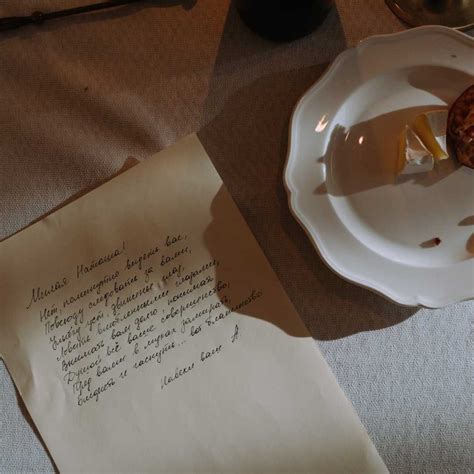 Милая Наташа!
Нет, поминутно видеть вас,
Повсюду следовать за вами,
Улыбку уст, движенье глаз,
Ловить влюбленными глазами,
Внимать вам долго, понимая
Душой всё ваше совершенство,
Пред вами в муках замирать,
Бледнеть и гаснуть... вот блаженство
Навеки ваш А